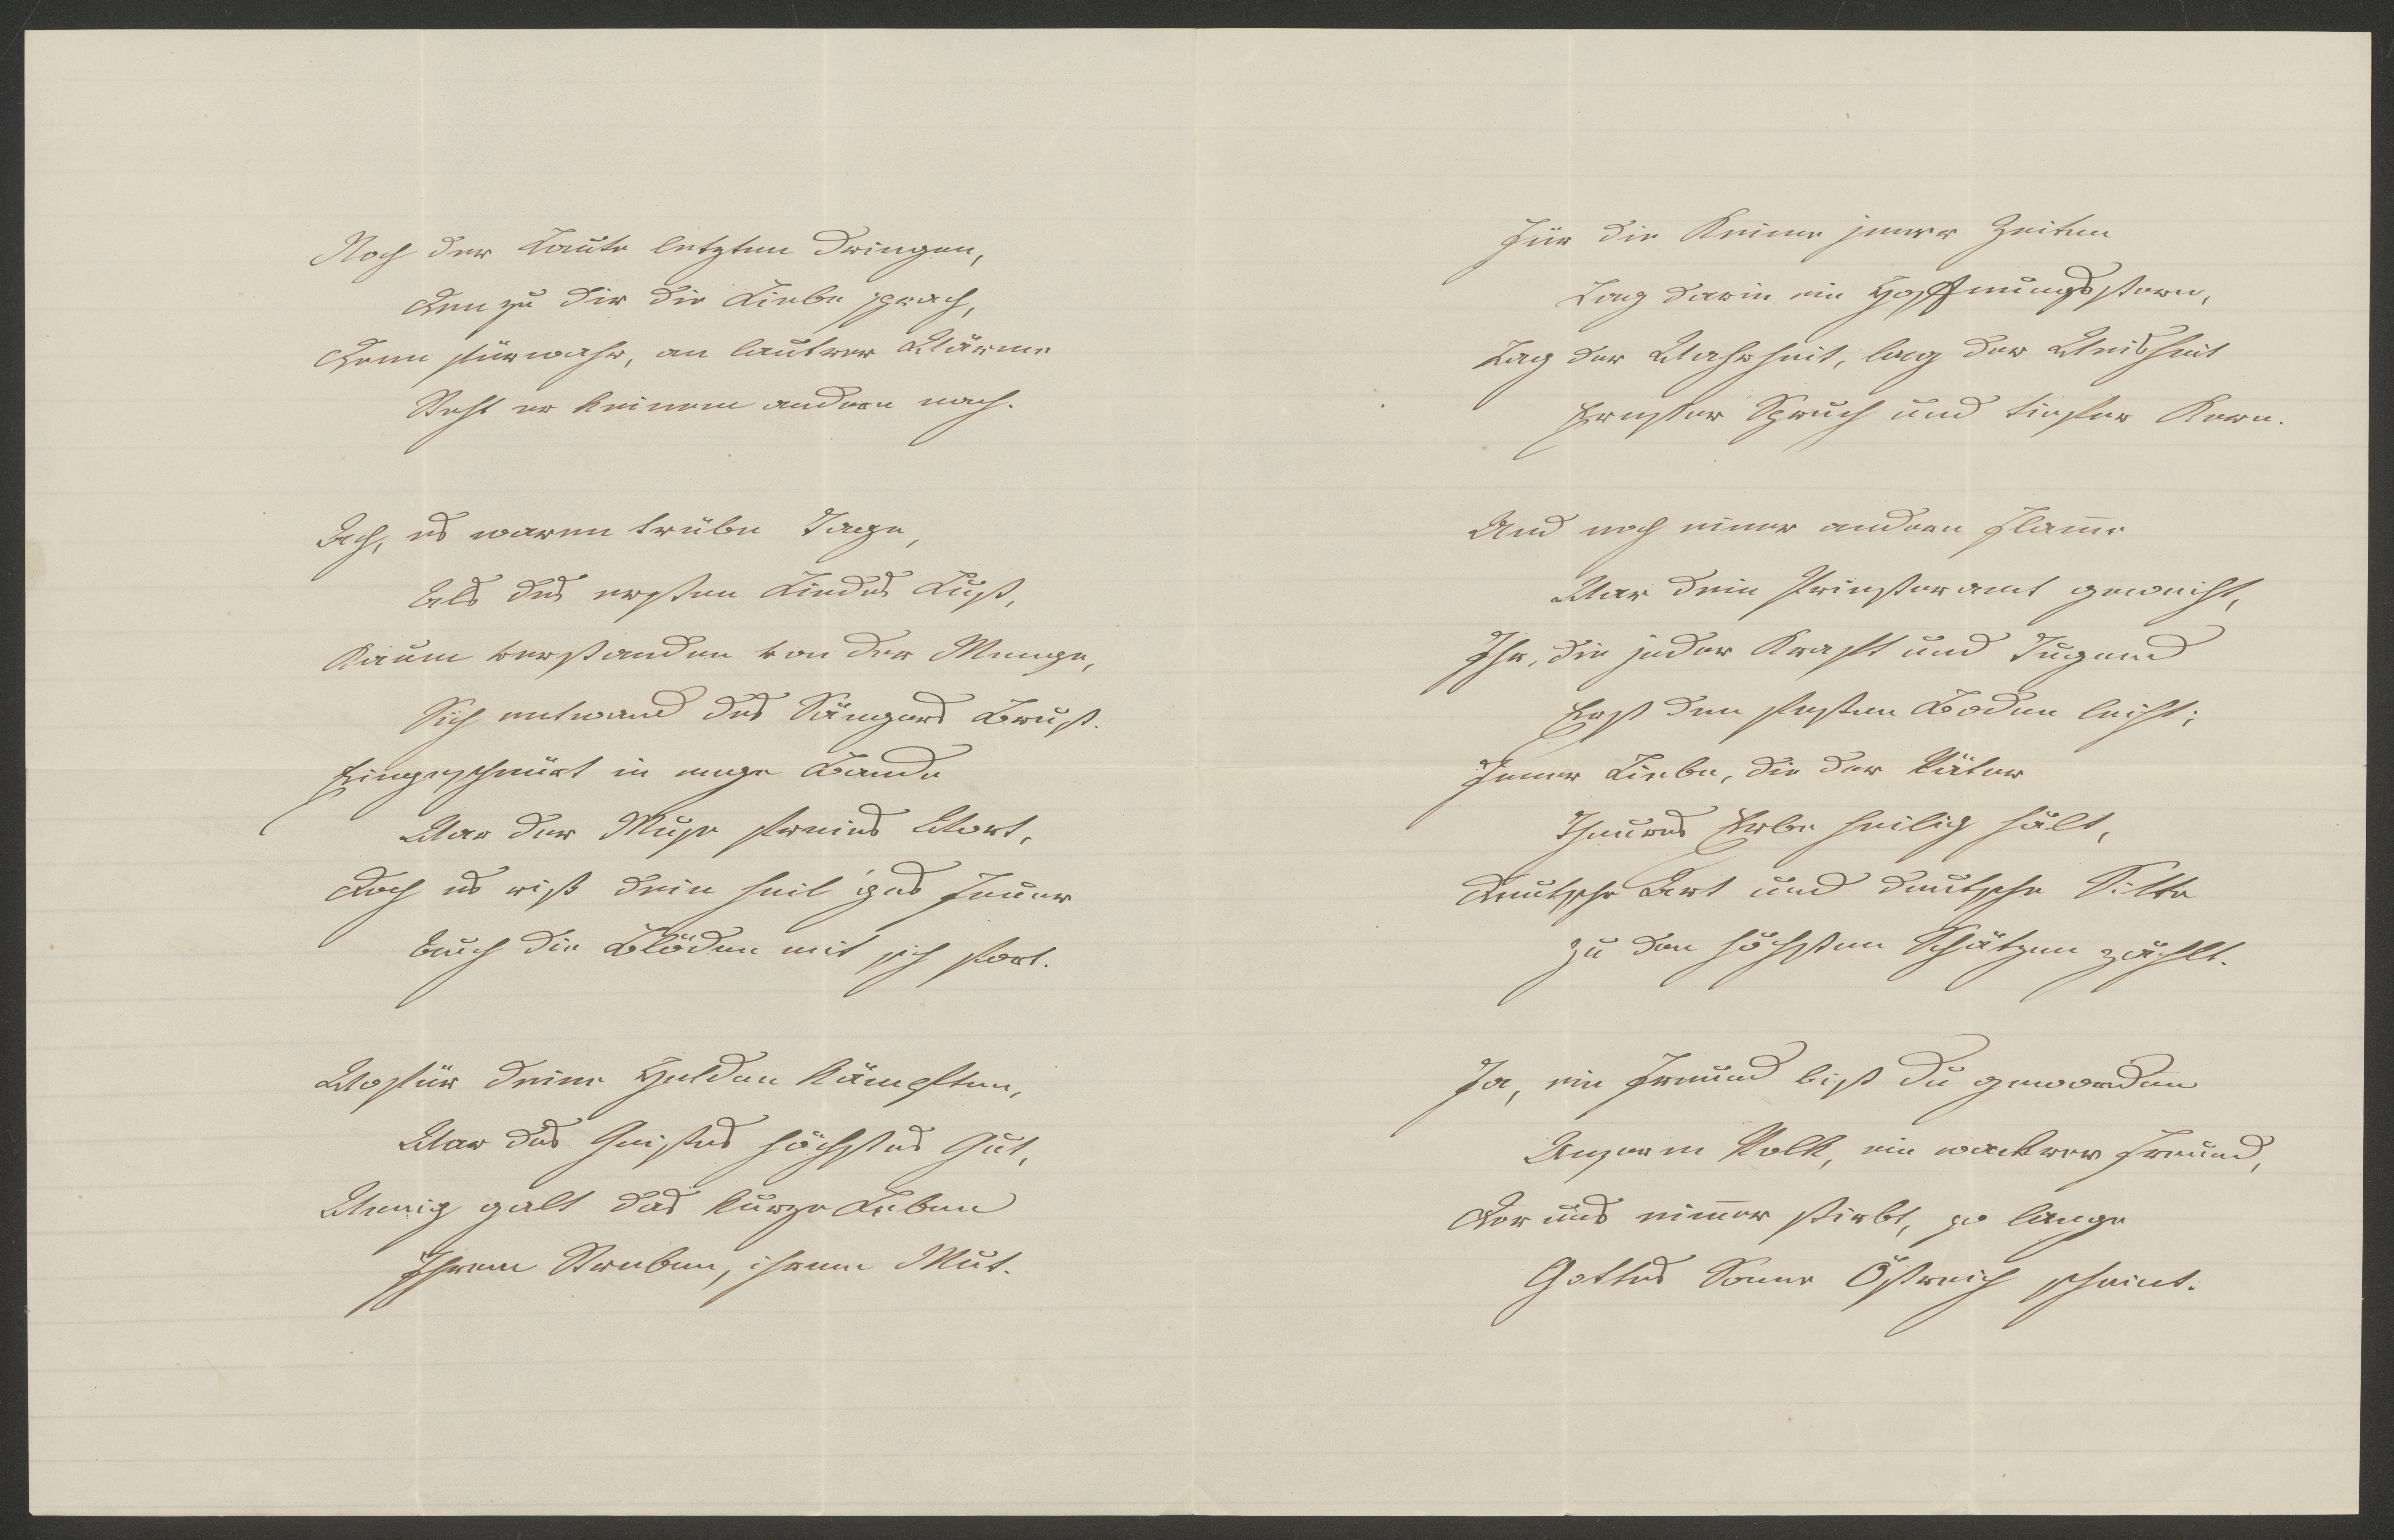 Noch der Laute letzten dringen,
Den zu dir die Liebe sprach,
Denn fürwahr, an lautrer Wärme
Steht er keinem andern nach.
Ach, es waren trübe Tage,
Als des ersten Liedes Lust,
Kaum verstanden von der Menge,
Sich entwand des Sängers Brust.
Eingeschnürt in enge Bande
War der Muse freies Wort,
Doch es riß dein heil'ges Feuer
Auch die Blöden mit sich fort.
Wofür deine Helden kämpften,
War des Geistes höchstes Gut,
Wenig galt das kurze Leben
Ihrem Streben, ihrem Mut.
Für die Keime jener Zeiten
Lag darin ein Hoffnungsstern,
Lag der Wahrheit, lag der Weisheit
Ernster Spruch und tiefer Kern.
Und noch einer andern Flam̅e
War dein Priesteramt geweiht,
Ihr, die jeder Kraft und Tugend
Erst den festen Boden leiht;
Jener Liebe, die der Väter
Theures Erbe heilig hält,
Deutsche Art und deutsche Sitte
Zu den höchsten Schätzen zählt.
Ja, ein Freund bist du geworden
Unserm Volk, ein wackrer Freund,
Der uns nim̅er stirbt, so lange
Gottes Sonne Östreich scheint.